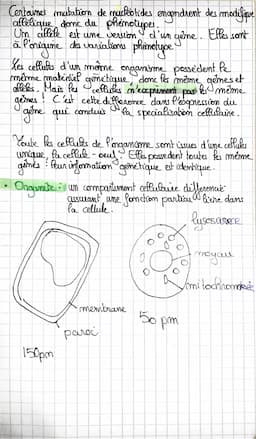 Certaines mutation de nucléotides engendrent des modifica
allélique donc du phénotype.
Un allèle est une version d'un gène. Elles sont
à l'origine des variations phénotype
Les cellules d'un même organisme possèdent le
même matériel génétique, donc les même gènes et
allèles. Mais les cellules n'expriment pas le même
gènes ! C'est cette différence dans l'expression du
gène qui conduis à la spécialisation cellulaire.
Toute les cellules de l'organisme sont issues d'une cellule
unique, la cellule-oeuf. Elle possèdent toutes les même
gènes : leur information génétique est identique.
• Organite : un compartiment cellulaire différencié
assurant une fonction particulière dans
la cellule.
lysosome
noyau
mitochondrie
membrane
paroi
50 pm
150pm